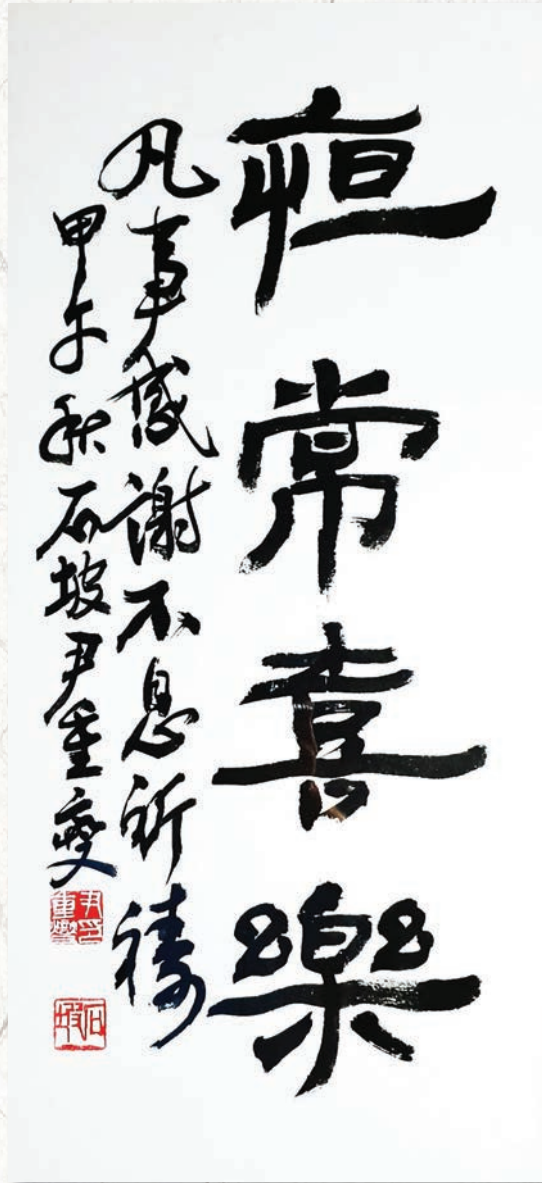 恒常喜樂
凡事感謝不息祈禱
甲午秋石坡尹重燮
尹重燮印
石坡